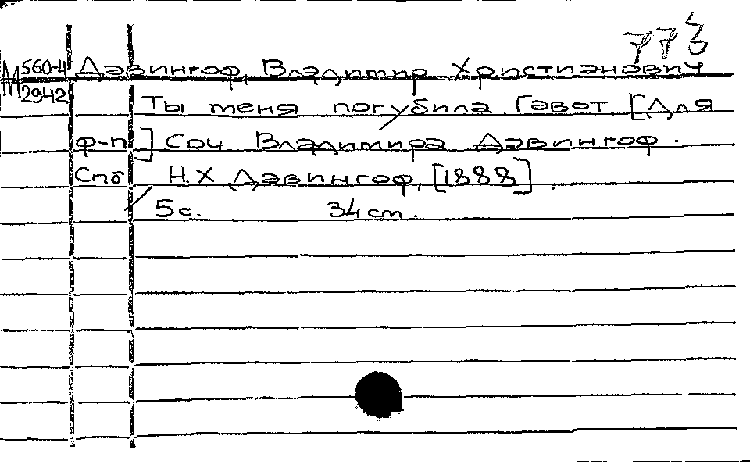 773
М 560-4 Давингоф, Владимир Христианович
2942 Ты меня погубила. Гавот [Для
ф-п] Соч. Владимира Давингоф.
Спб Н.Х Давингоф, [1888].
5 с. 34 см.